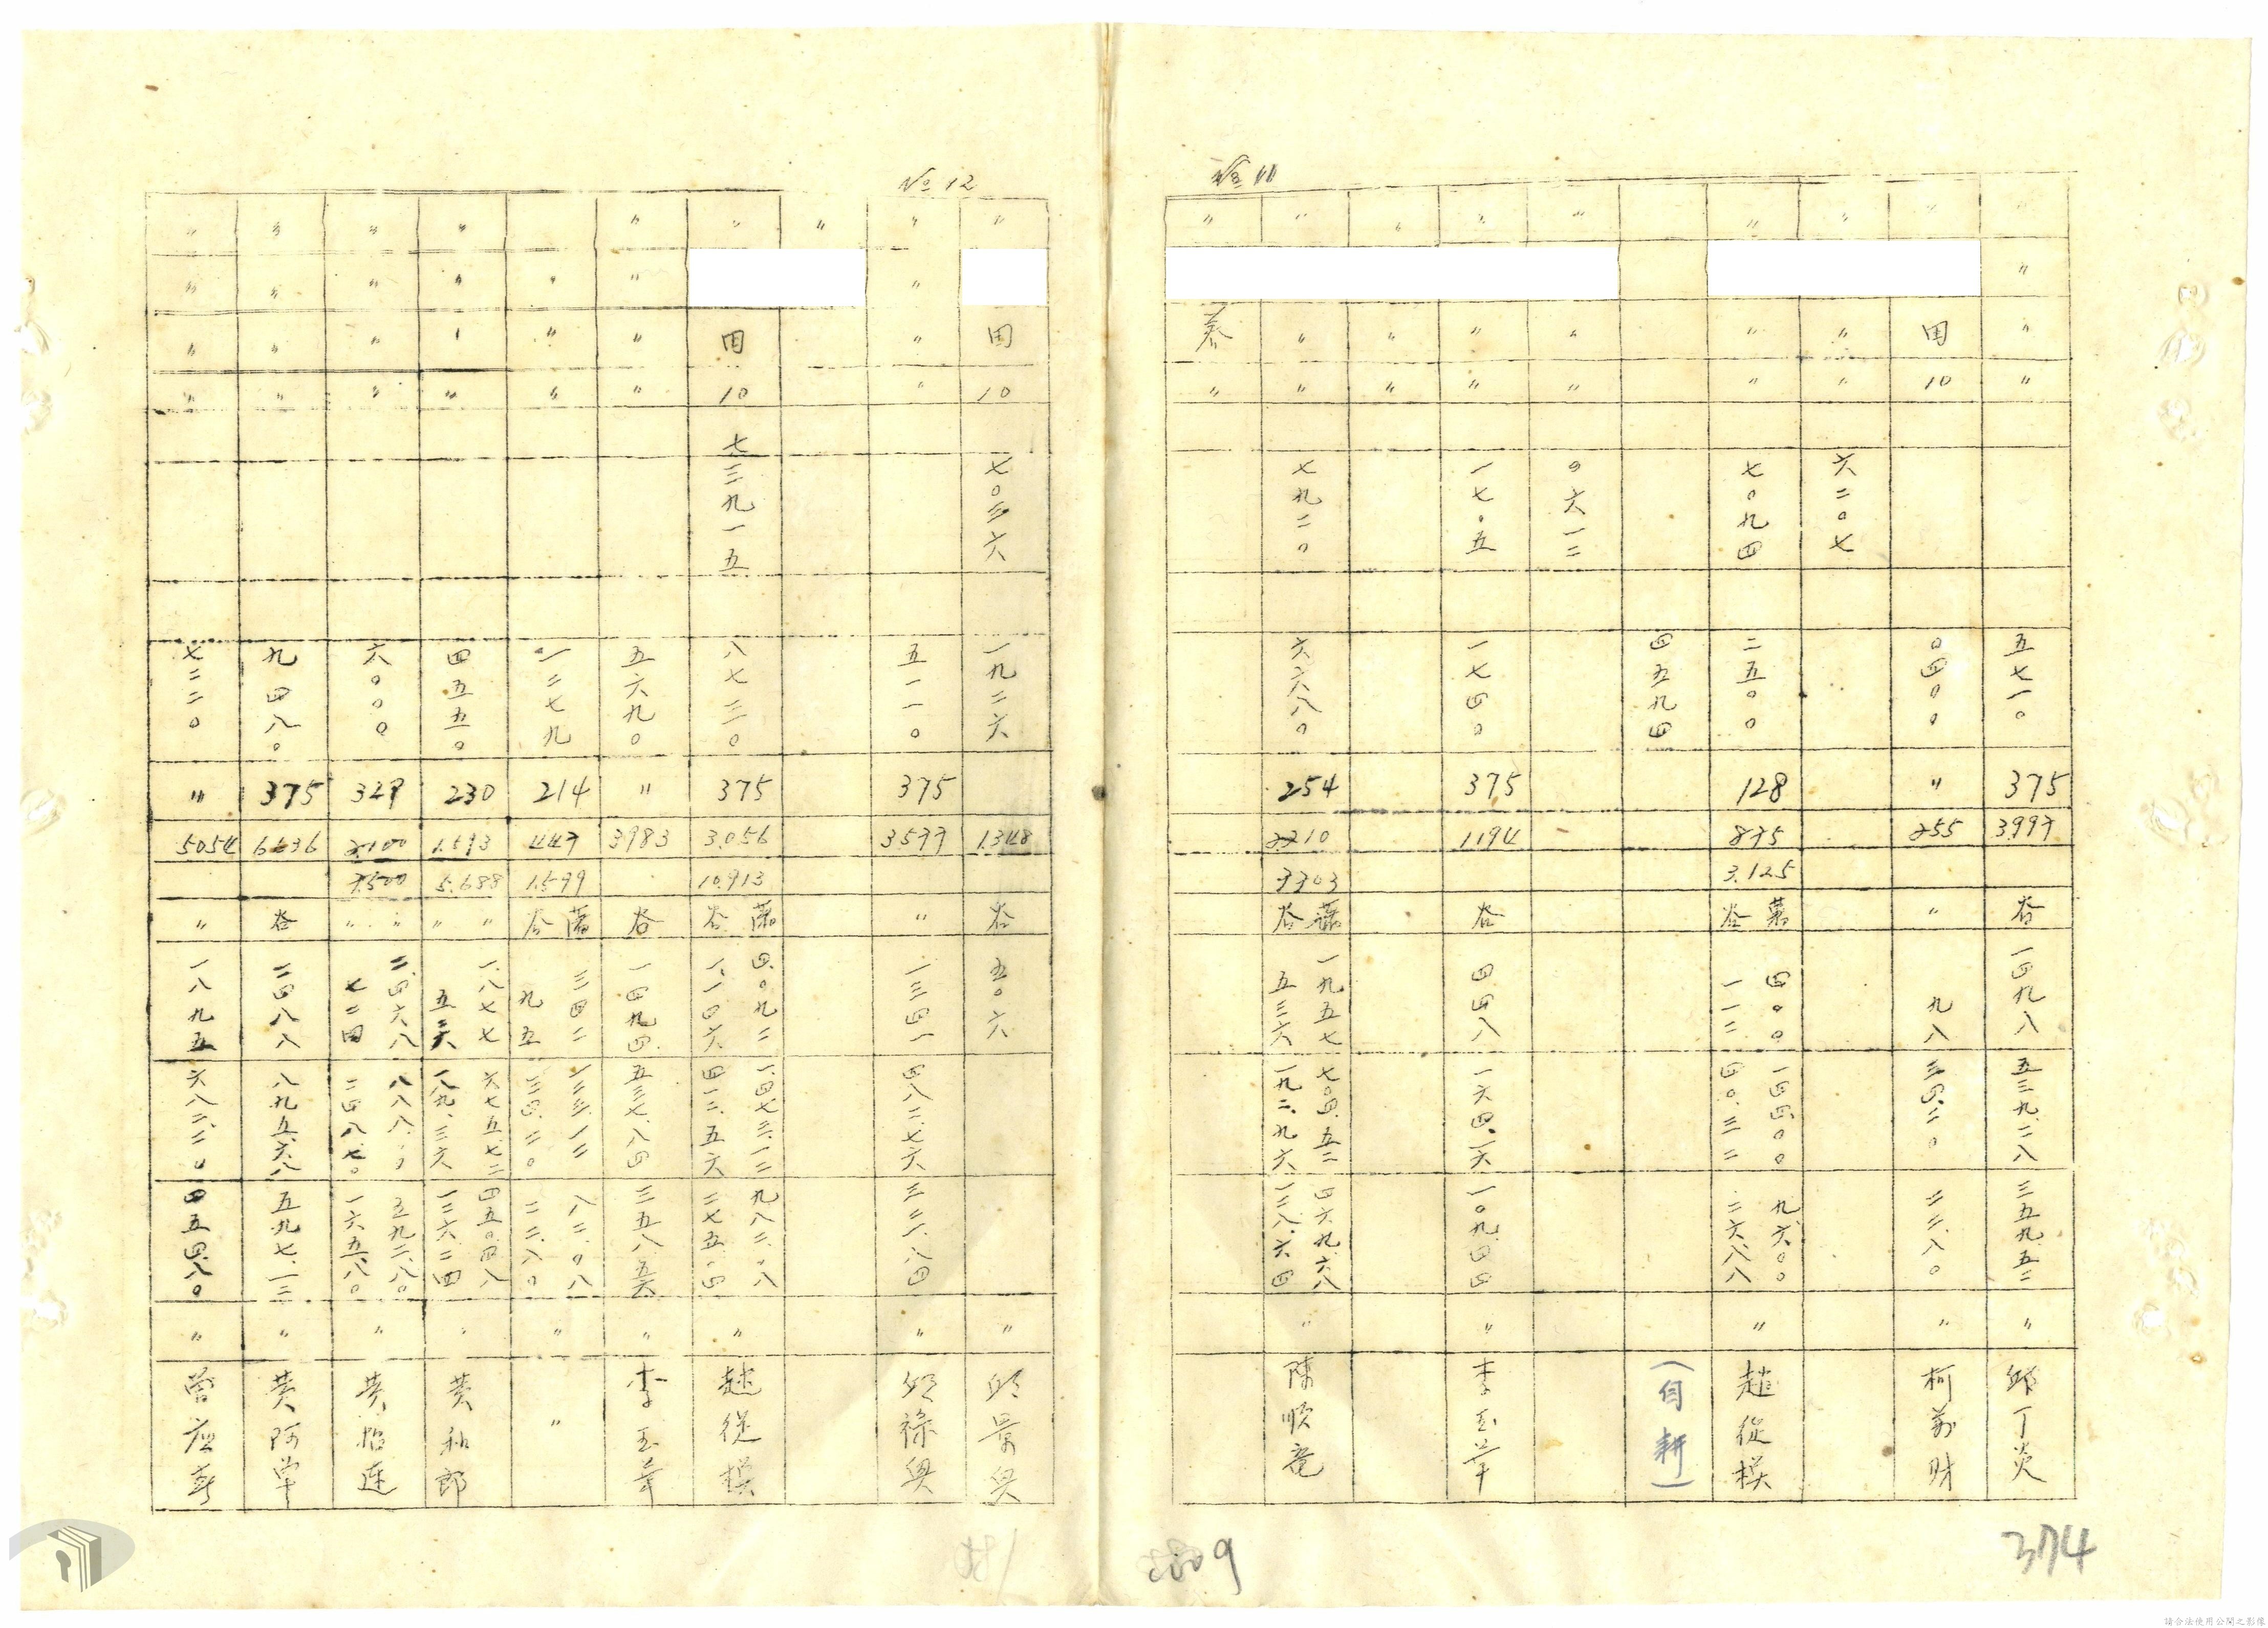 No 11
〃 〃 〃 〃 五七一〇 375 3.997 谷 一四九八 五三九.二八 三五九.五二 〃 邱丁炎
〃 田 10 〇四〇〇 〃 255 〃 九八 三四.二〇 二二.八〇 〃 柯萬財
〃 〃 〃 六二〇七
〃 〃 〃 七〇九四 二五〇〇 128 875 3.125 藷 谷 四〇〇 一一二 一四四.〇〇 四〇.三二 九六.〇〇 二六.八八 〃 趙從模
四五九四 (自耕)
〃 〃 〃 〇六一二
〃 〃 〃 一七〇五 一七四〇 375 1194 谷 四四八 一六四.一六 一〇九.四四 〃 李玉華
〃 〃 〃
〃 〃 〃 七九二〇 六六八〇 254 藷 谷 一九五七 五三六 七〇四.五二 一九二.九六 四六九.六八 一二八.六四 〃 陳順竜
〃 〃
374
No 12
〃 田 10 七〇三六 一九二六 1.348 谷 五〇六 〃 邱景興
〃 〃 〃 〃 五一一〇 375 3577 〃 一三四一 四八二.七六 三二一.八四 〃 邱祿興
〃
〃 田 10 七三九一五 八七三〇 375 3.056 10.913 藷 谷 四.〇九二 一.一四六 一.四七三.一二 四一二.五六 九八二.〇八 二七五.〇四 〃 趙從模
〃 〃 〃 〃 五六九〇 〃 3983 谷 一四九四 五三七.八四 三五八.五六 〃 李玉華
〃 〃 〃 一二七九 214 447 1.599 藷 谷 三四二 九五 一二三.一二 三四.二〇 八二.〇八 二二.八〇 〃 〃
〃 〃 〃 〃 四五五〇 230 1.593 5.688 〃 〃 一.八七七 五二六 六七五.七二 一八九.三六 四五〇.四八 一二六.二四 〃 黄和郎
〃 〃 〃 〃 六〇〇〇 329 2.100 7.500 〃 〃 二.四六八 七二四 二四八.七〇 五九二.八〇 一六五.八〇 〃
〃 〃 〃 〃 九四八〇 375 6636 谷 二四八八 八九五.六八 五九七.一二 〃 黄阿草
〃 〃 〃 〃 七二二〇 〃 5054 〃 一八九五 六八二.二〇 四五四.八〇 〃
請合法使用公開之影像